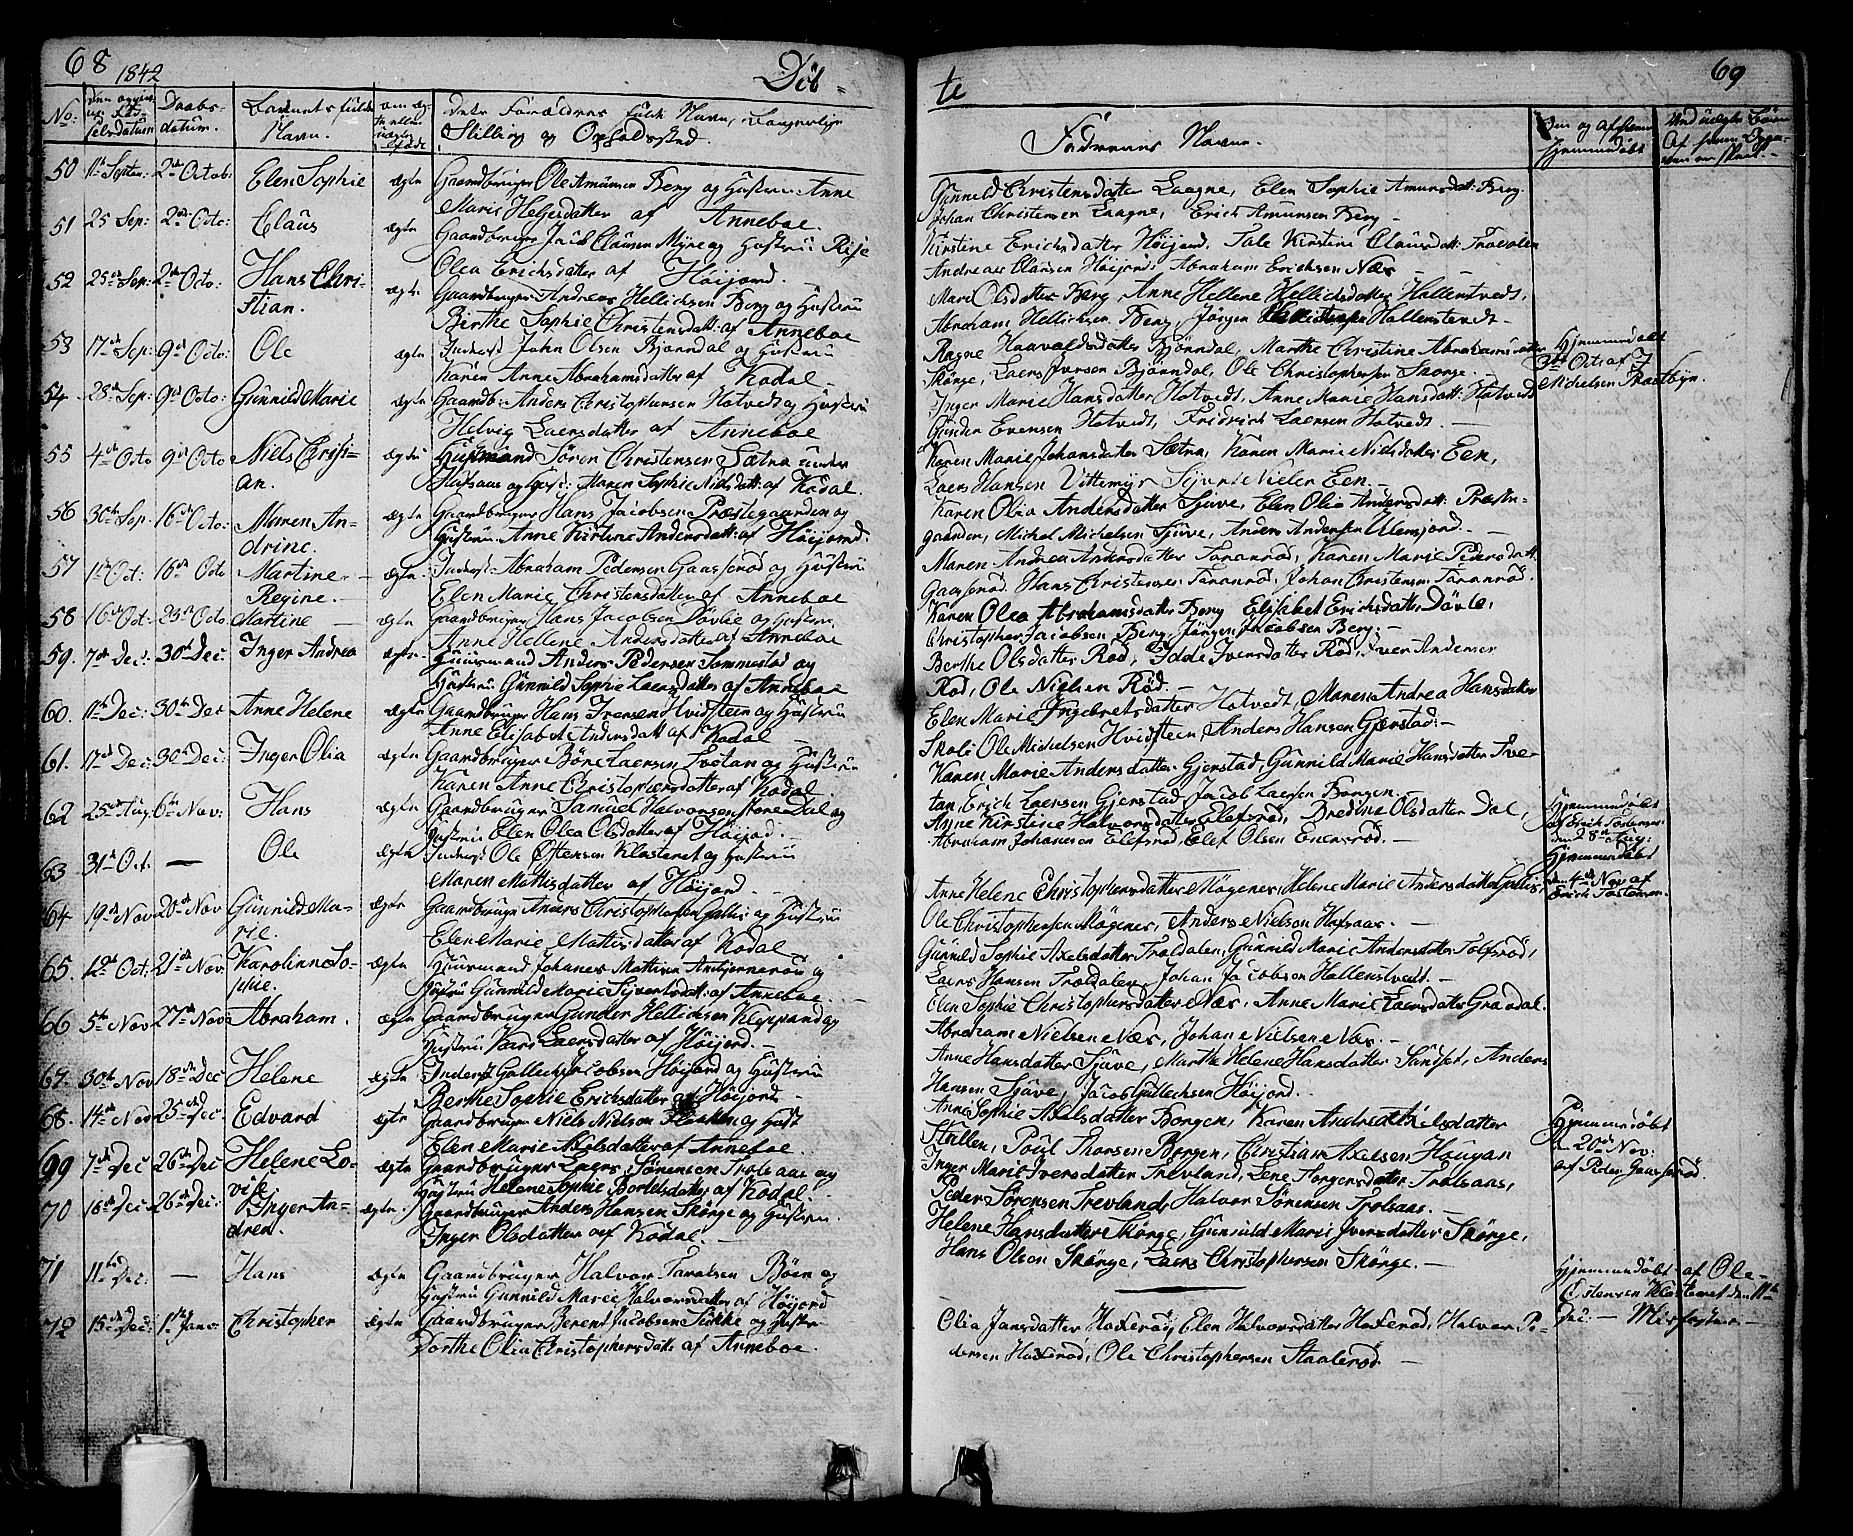 68 1842 Döb-
No. Daabs-
datum. Barnets fulde
Navn.
Stilling og Opholdssted.
50 11te Septbr: 2den Octob: Elen Sophie ægte Gaardbruger Ole Amunsen Berg og Hustru Anne
Marie Helgesdatter af Anneboe.
51 25 Sep: 2den Octo: Claus ægte Gaardbruger Jacob Clausen Myre og Hustrü
Olea Erichsdatter af Höijord.
52 25de Sep: 2den Octo: Hans Chri-
stian. ægte Gaardbruger Andreas Hellichsen Berg og Hustrü
Birthe Sophie Christensdatt: af Anneboe
53 17de Sep: 9de Octo: Ole ægte Inderst John Olsen Bjørndal og Hustrü
Karen Anne Abrahamsdatter af Kodal.
54 28de Sep: 9de Octo: Gunnild Marie ægte Gaardb: Anders Christophersen Hotvedt og Hustrü
Helvig Laersdatter af Anneboe
55 4de Octo 9de Octo Niels Christi-
an. ægte Huusmand Sören Christensen Sætra under
Hafsaas og Hust: Maren Sophie Nielsdatt: af Kodal.
56 30te Sep: 16de Octo: Maren An-
drine. ægte Gaardbruger Hans Jacobsen Præstegaarden og
Hustrü Anne Kirstine Andersdatt: af Höijord.
57 1ste Oct: 16de Octo Martine
Regine. ægte Inderst Abraham Pedersen Gaasserød og Hustrü
Elen Marie Christensdatter af Anneboe
58 16de Oct: 23de Octo Martine ægte Gaardbruger Hans Jacobsen Dövle og Hustru
Anne Hellene Andersdatter af Anneboe
59. 7de Dec: 30te Dec: Inger Andrea ægte Huusmand Anders Pedersen Sommestad og
Hustrü Gunnild Sophie Laersdatter af Anneboe
60. 11te Dec: 30te Dec Anne Helene ægte Gaardbruger Hans Iversen Hvidsteen og Hustrü
Anne Elisabet Andersdatt af Kodal
61. 17de Dec: 30te Dec: Inger Olia ægte Gaardbruger Börre Laersen Svetan og Hustrü
Karen Anne Christophersdatter af Kodal
62 25de Aug. 6te Nov: Hans ægte Gaardbruger Samuel Halvorsen store Dal og
Hustrü Elen Olea Olsdatter af Höijord.
63 31te Oct. — Ole ægte Inderst Ole Østensen Klosteret og Hustrü
Maren Mathisdatter af Höijord.
64 19de Nov 20de Nov Gunnild Ma-
rie. ægte Gaardbruger Anders Christophersen Gallis og Hustrü
Elen Marie Mathisdatter af Kodal
65. 12te Oct: 21de Nov: Karolinne So-
phie. ægte Huusmand Johanes Mathisen og
Hustrü Gunnild Marie Sivertsdatt: af Anneboe.
66 5te Nov 27de Nov Abraham. ægte Gaardbruger Gunder Hellichsen Kleppan og
Hustrü Kari Laersdatter af Höijord.
67. 30te Nov 18de Dec Helene ægte Inderst Gullich Jacobsen Höijord og Hustrü
Berthe Sophie Erichsdatter af Höijord
68. 14de Nov 25de Dec: Edvard ægte Gaardbruger Niels Nielsen og Hust
Elen Marie Nielsdatter af Anneboe.
69 7de Dec 26de Dec Helene Lo-
vise. ægte Gaardbruger Laers Sörensen Trolsaas og
Hustrü Helene Sophie Bertelsdatter af Kodal.
70 16de Dec 26de Dec: Inger An-
drea. ægte Gaardbruger Anders Hansen Skörge og Hustru
Inger Olsdatter af Kodal.
71 11te Dec: — Hans ægte Gaardbruger Halvor Taralsen Böen og
Hustrü Gunnild Marie Halvorsdatter af Höijord
72 15de Dec: 1ste Janu: Christopher ægte Gaardbruger Berent Jacobsen og Hustru
Dorthe Olia Christophersdatt: af Anneboe.
te 69
Faddernes Navne.
Gunnild Christensdatter Laagne, Elen Sophie Amunsdatt: Berg
Johan Christensen Laagne, Erich Amunsen Berg.
Kirstine Erichsdatter Höijord, Tale Kirstine Clausdatt:
Andreas Clausen Höijord, Abraham Erichsen Næs
Mari Olsdatter Berg, Anne Hellene Hellichsdatter Hallenstvedt,
Abraham Hellichsen Berg, Jörgen Hallenstvedt
Ragne Haavaldsdatter Bjørndal, Marthe Christine Abrahamsdatter
Skörge, Laers Iversen Bjørndal, Ole Christophersen Skörge.
Hjemmedøbt
3de Oct: af J
Michelsen Præstbyn.
Inger Marie Hansdatter Hotvedt, Anne Marie Hansdatt: Hotvedt
Gunder Evensen Hotvedt, Fridrich Laersen Hotvedt.
Karen Marie Johansdatter Sætra, Karen Marie Nielsdatter Een,
Laers Hansen Nielsen Een.
Karen Olia Andersdatter Sjüve, Elen Olia Andersdatt: Præste-
gaarden, Michel Michelsen Sjüve, Anders Andersen
Maren Andrea Andersdatter Taranröd, Karen Marie Pedersdatt:
Gaasseröd, Hans Christensen Taranröd, Johan Christensen Taranröd.
Karen Olea Abrahamsdatter Berg Elisabet Erichsdatter Dövle,
Christopher Jacobsen Berg, Jörgen Jacobsen Berg.
Berthe Olsdatter Röd, Idde Iversdatter Röd, Iver Andersen
Röd, Ole Nielsen Röd.
Elen Marie Ingebretsdatter Hotvedt, Maren Andrea Hansdatter
Skoli Ole Michelsen Hvidsteen, Anders Hansen Gjerstad.
Karen Marie Andersdatter Gjerstad, Gunnild Marie Hansdatter Sve-
tan, Erich Laersen Gjerstad, Jacob Laersen Borgen.
Anne Kirstine Halvorsdatter Elefsröd, Bredine Olsdatter Dal,
Abraham Johannesen Elefsröd, Elef Olsen
Hjemmedøbt
af Erich
den 28de Aug:
Hjemmedøbt
den 4de Nov af
Erich
Anne Helene Christophersdatter Mögenes, Helene Marie Andersdatter Gallis,
Ole Christophersen Mögenes, Anders Nielsen Hafsaas.
Gunnild Sophie Axelsdatter Troldalen, Gunnild Marie Andersdatter Tolfsröd,
Laers Hansen Troldalen, Johan Jacobsen Hallenstvedt.
Elen Sophie Christophersdatter Næs, Anne Marie Laersdatter Gravdal.
Abraham Nielsen Næs, Johan Nielsen Næs.
Anne Hansdatter Sjüve, Marthe Helene Hansdatter Sundset, Anders
Hansen Sjüve, Jacob Gullichsen Höijord.
Anne Sophie Axelsdatter Borgen, Karen Andrea Nielsdatter
Poul Thorsen Borgen, Christian Axelsen Haugan
Hjemmedøbt
20de Nov:
af Peder Gaasseröd.
Inger Marie Iversdatter Trevland, Lene Torgersdatter Trolsaas,
Peder Sörensen Trevland, Halvor Sörensen Trolsaas.
Helene Hansdatter Skörge, Gunnild Marie Iversdatter Skörge,
Hans Olsen Skörge, Laers Christophersen Skörge.
Hjemmedøbt af Ole
Østensen Klosteret den 11te
Dec:
Olia Jansdatter Haxeröd, Elen Halvorsdatter Haxeröd, Halvor Pe-
dersen Haxeröd, Ole Christophersen Staaleröd